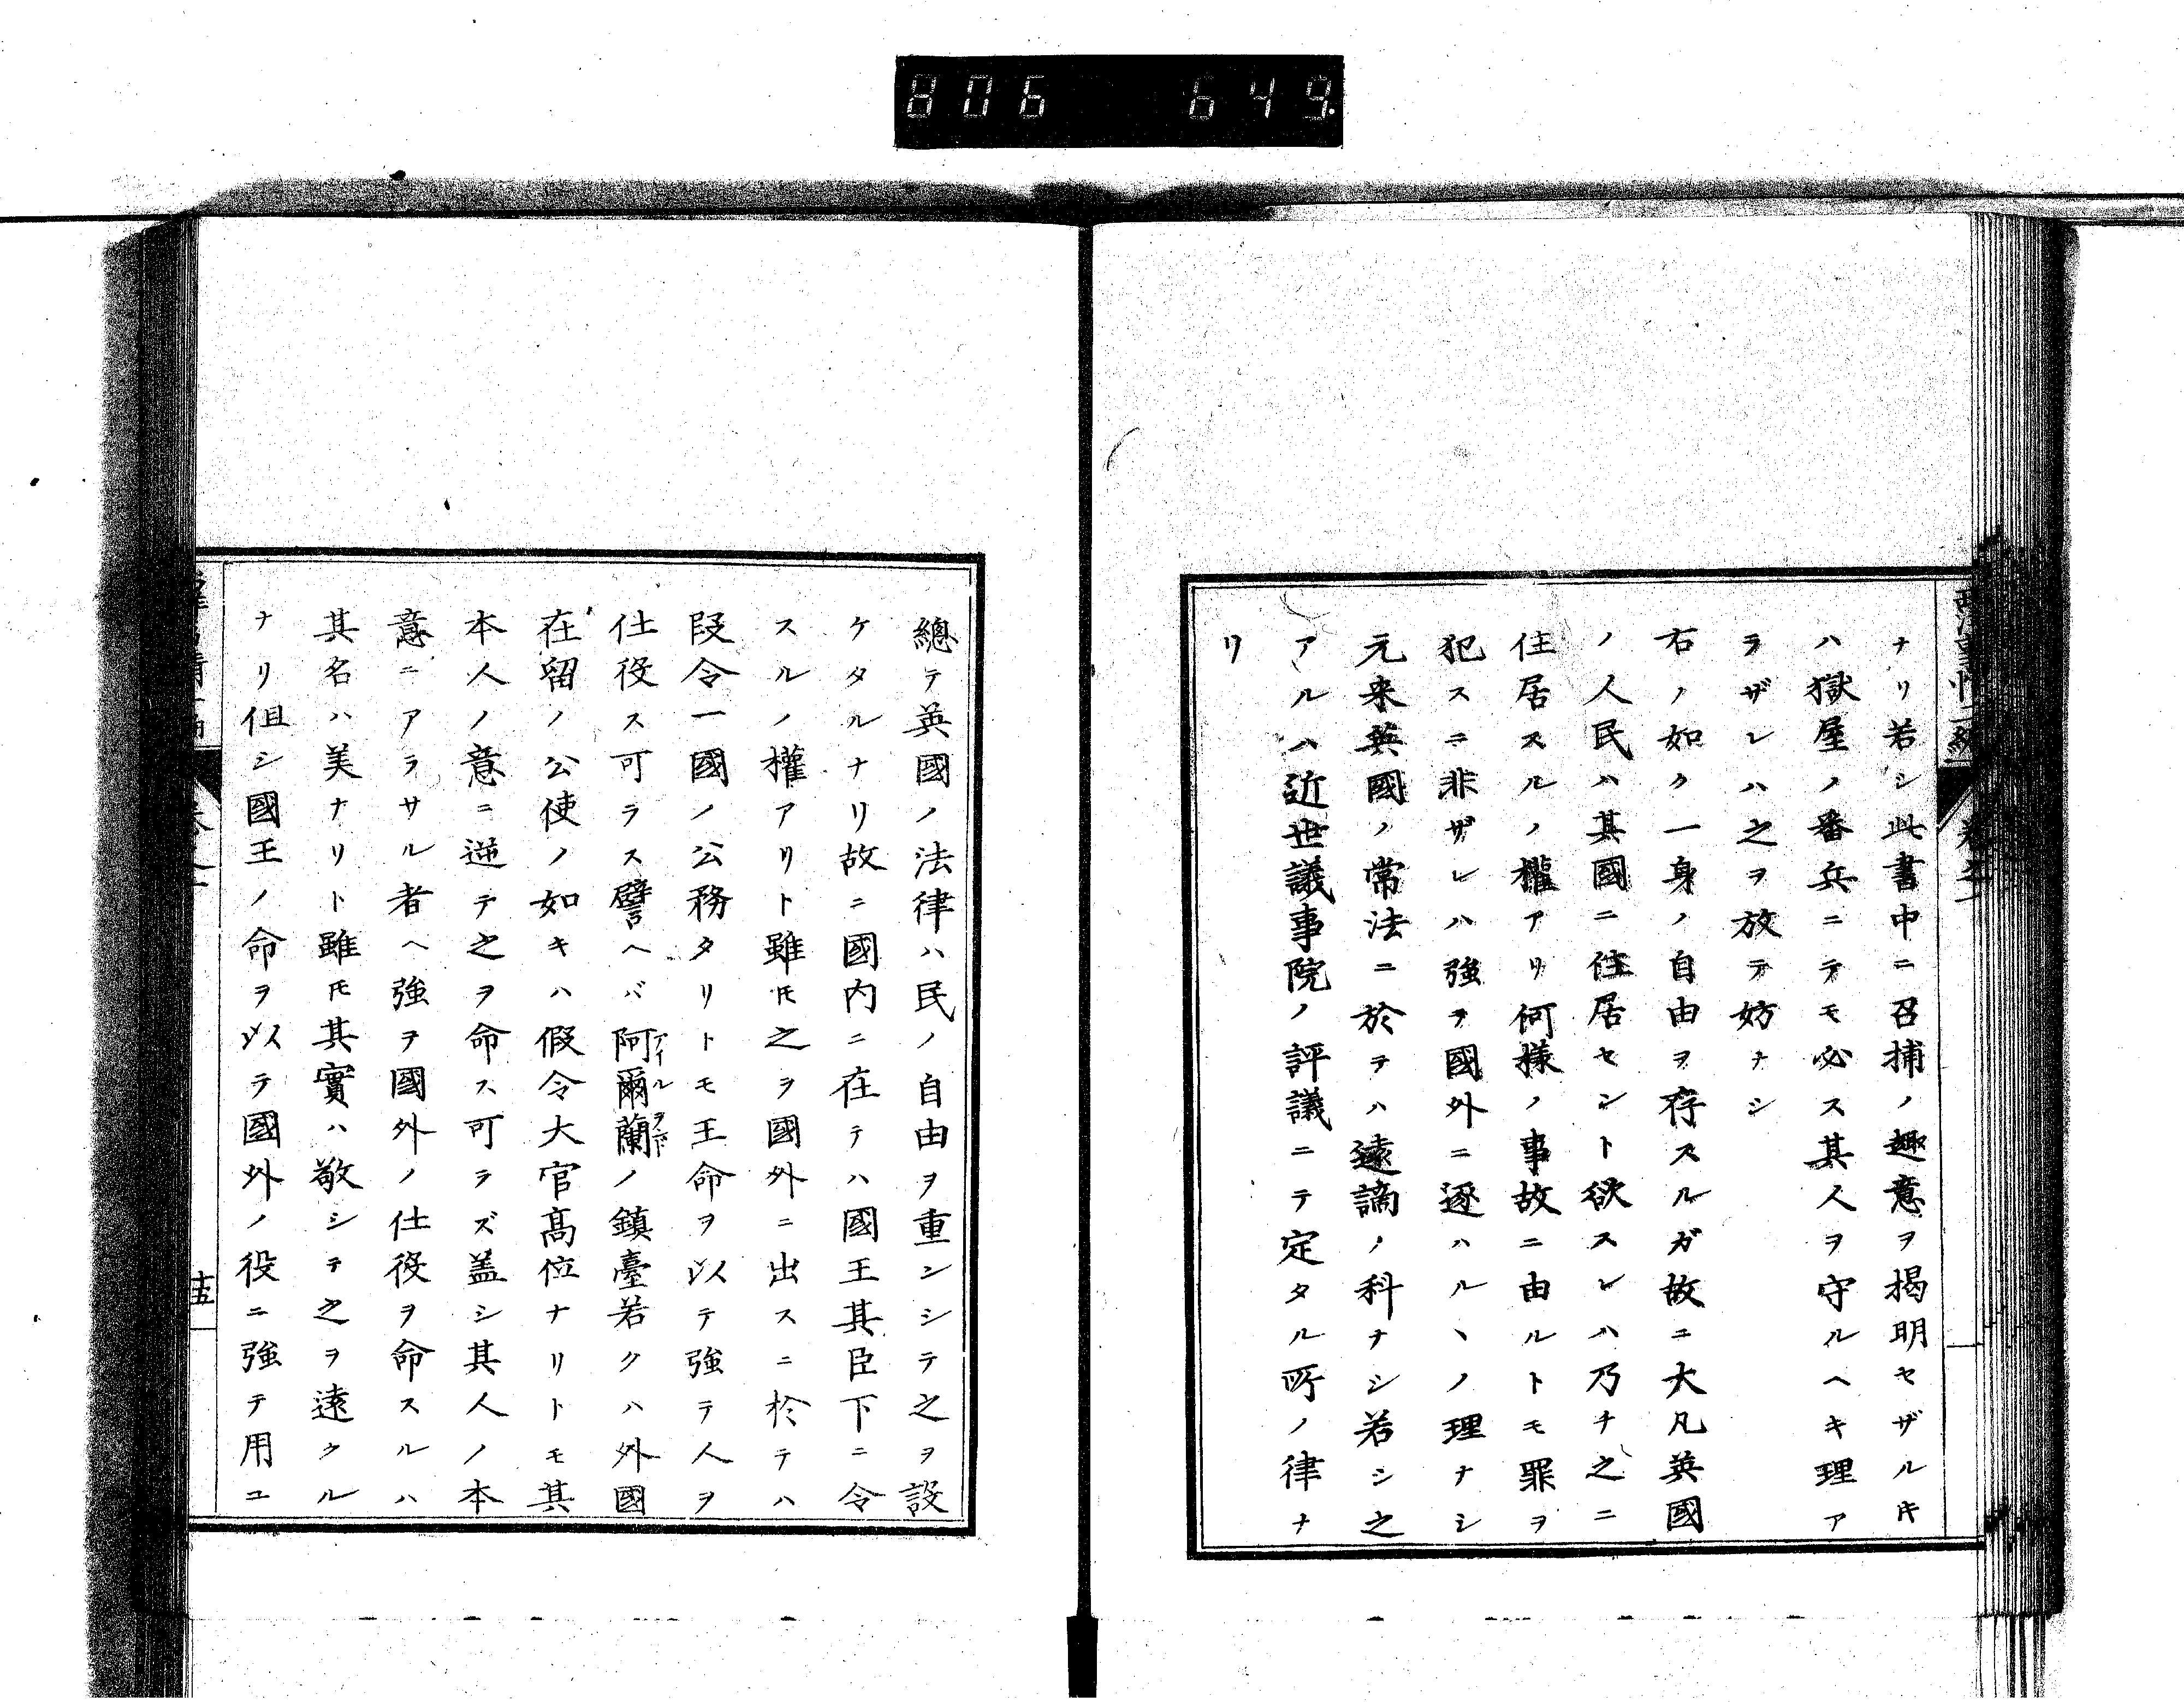 806 649.
ナリ若シ此書中ニ召捕ノ趣意ヲ揭明セザルキ
ハ獄屋ノ番兵ニテモ必ス其人ヲ守ルヘキ理ア
ラザレハ之ヲ放テ妨ナシ
右ノ如ク一身ノ自由ヲ存スルガ故ニ大凡英國
ノ人民ハ其國ニ住居セント欲スレハ乃チ之ニ
住居スルノ權アリ何樣ノ事故ニ由ルトモ罪ヲ
犯スニ非ザレハ強ヲ國外ニ逐ハルヽノ理ナシ
元来英國ノ常法ニ於テハ遠謫ノ科ナシ若シ之
アルハ近世議事院ノ評議ニテ定タル所ノ律ナ
リ
總テ英國ノ法律ハ民ノ自由ヲ重ンシテ之ヲ設
ケタルナリ故ニ國内ニ在テハ國王其臣下ニ令
スルノ權アリト雖𪜈之ヲ國外ニ出スニ於テハ
叚令一國ノ公務タリトモ王命ヲ以テ強テ人ヲ
仕役ス可ラス譬ヘバ阿爾蘭ノ鎮臺若クハ外國
アイルランド
在留ノ公使ノ如キハ假令大官髙位ナリトモ其
本人ノ意ニ逆テ之ヲ命ス可ラズ盖シ其人ノ本
意ニアラサル者ヘ強ヲ國外ノ仕役ヲ命スルハ
其名ハ美ナリト雖𪜈其實ハ敬シテ之ヲ遠クル
ナリ伹シ國王ノ命ヲ以テ國外ノ役ニ強テ用ユ
十五